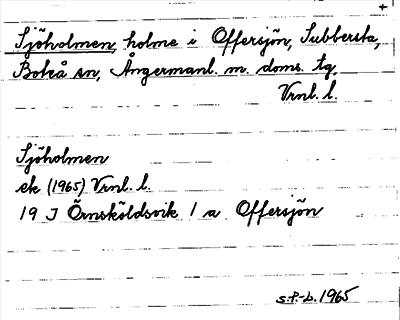 +
Sjöholmen, holme i Offersjön, Subbersta,
Boteå sn, Ångermanl. m. doms. tg,
Vrnl. l.
Sjöholmen
ek (1965) Vrnl. l.
19 J Örnsköldsvik 1 a Offersjön
S.P-b. 1965